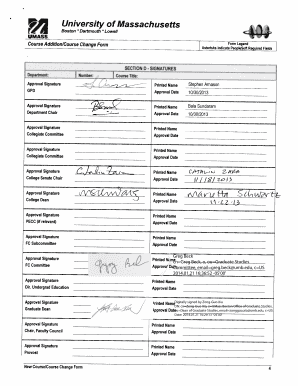 University of Massachusetts
UMASS
Boston * Dartmouth * Lowell
Course Addition/Course Change Form
Form Legend
Asterisks Indicate PeopleSoft Required Fields
SECTION D - SIGNATURES
Department: Number: Course Title:
Approval Signature Printed Name Stephen Arnason
GPD Approval Date 10/30/2013
Approval Signature Printed Name Bala Sundaram
Department Chair Approval Date 10/30/2013
Approval Signature Printed Name
Collegiate Committee Approval Date
Approval Signature Printed Name
Collegiate Committee Approval Date
Approval Signature Catalin Zara Printed Name CATALIN ZARA
College Senate Chair Approval Date 11/18/2013
Approval Signature Printed Name Marietta Schwartz
College Dean Approval Date 11-22-13
Approval Signature Printed Name
PECC (if relevant) Approval Date
Approval Signature Printed Name
FC Subcommittee Approval Date
Approval Signature Greg Beck Printed Name Greg Beck
FC Committee Approval Date
Approval Signature Printed Name
Dir. Undergrad Education Approval Date
Approval Signature Printed Name
Graduate Dean Approval Date
Approval Signature Printed Name
Chair, Faculty Council Approval Date
Approval Signature Printed Name
Provost Approval Date
New Course/Course Change Form